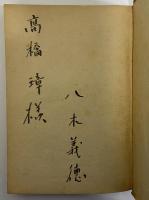 高橋璋様
八木義德